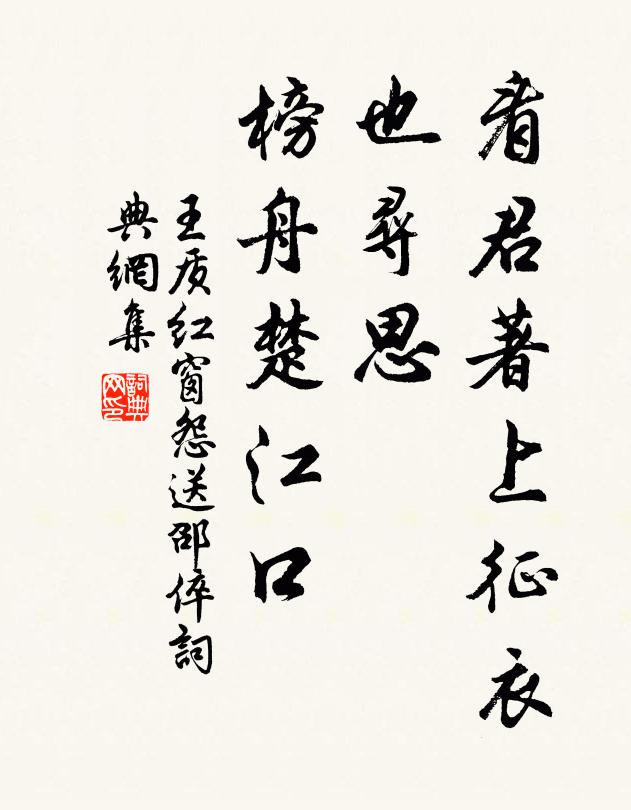 看君著上征衣
也尋思
榜舟楚江口
王质红窗怨送邵倅詞
典網集
詞典
网印